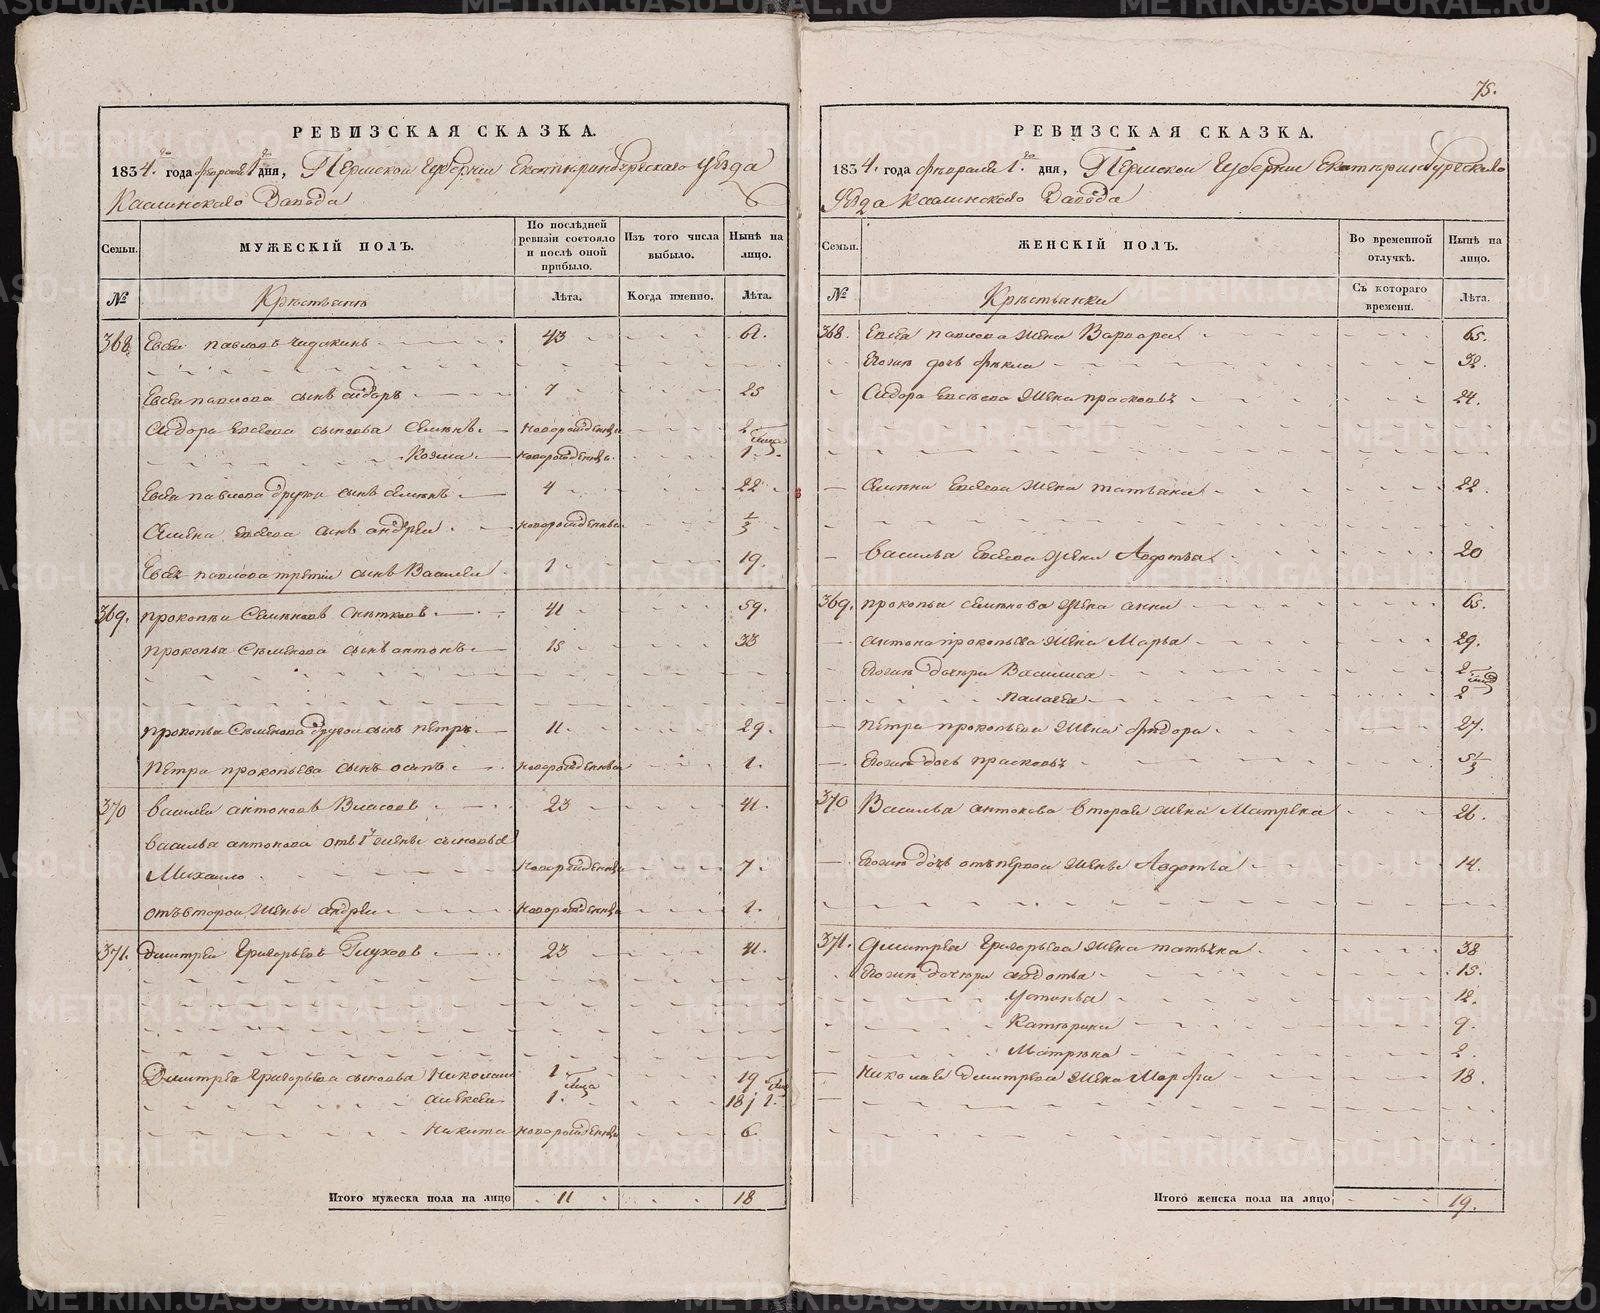 РЕВИЗСКАЯ СКАЗКА.
1834. года февраля 1го дня, Пермской Губернии Екатеринбургского уезда
Каслинского Завода
Семьи. МУЖЕСКІЙ ПОЛЪ. По послѣдней ревизіи состояло и послѣ оной прибыло. Изъ того числа выбыло. Нынѣ на лицо.
№ Крестьяне Лѣта. Когда именно. Лѣта.
368. Евсей павловъ 43 61.
Евсея павлова сынъ сидоръ 7 25
Сидора Евсеева сыновья Семенъ новорожденны 2
Козма новорожденны 1
Евсея павлова другой сынъ семенъ 4 22
Семена Евсеева сынъ андрей новорожденны 1/3
Евсея павлова третий сынъ Василей 1 19.
369. прокопей Семеновъ 41 59.
прокопья Семенова сынъ антонъ 15 33
прокопья Семенова другой сынъ петръ 11. 29.
петра прокопьева сынъ осипъ новорожденны 1.
370 василей антоновъ Власовъ 23 41.
василья антонова отъ 1й жены сыновья
Михаило новорожденны 7.
отъ второй жены андрей новорожденны 1.
371. дмитрей Григорьевъ Глуховъ 23 41.
Дмитрея Григорьева сыновья Николай 1 19
алексей 1. 18
никита новорожденны 6
Итого мужеска пола на лицо 11 18
75.
РЕВИЗСКАЯ СКАЗКА.
1834. года февраля 1го дня, Пермской Губернии Екатеринбургского
уезда Каслинского Завода
Семьи. ЖЕНСКІЙ ПОЛЪ. Во временной отлучкѣ. Нынѣ на лицо.
№ Крестьянки Съ котораго времени. Лѣта.
368. Евсея павлова жена Варвара 65.
Ихъ дочь фекла 32.
Сидора Евсеева жена прасковья 24.
семена Евсеева жена татьяна 22.
василья Евсеева жена Авдотья 20
369. прокопья семенова жена анна 65.
антона прокопьева жена Марья 29.
Ихъ дочери Василиса 2
палагея 2
петра прокопьева жена федора 27.
Ихъ дочь прасковья 5 1/3
370 Василья антонова вторая жена Матрена 26.
Ихъ дочь отъ первой жены Авдотья 14.
371. дмитрея Григорьева жена татьяна 38
Ихъ дочери авдотья 15.
устинья 12.
Катерина 9.
Матрена 2.
николая дмитрева жена Марфа 18.
Итого женска пола на лицо 19.
METRIKI.GASO-URAL.RU